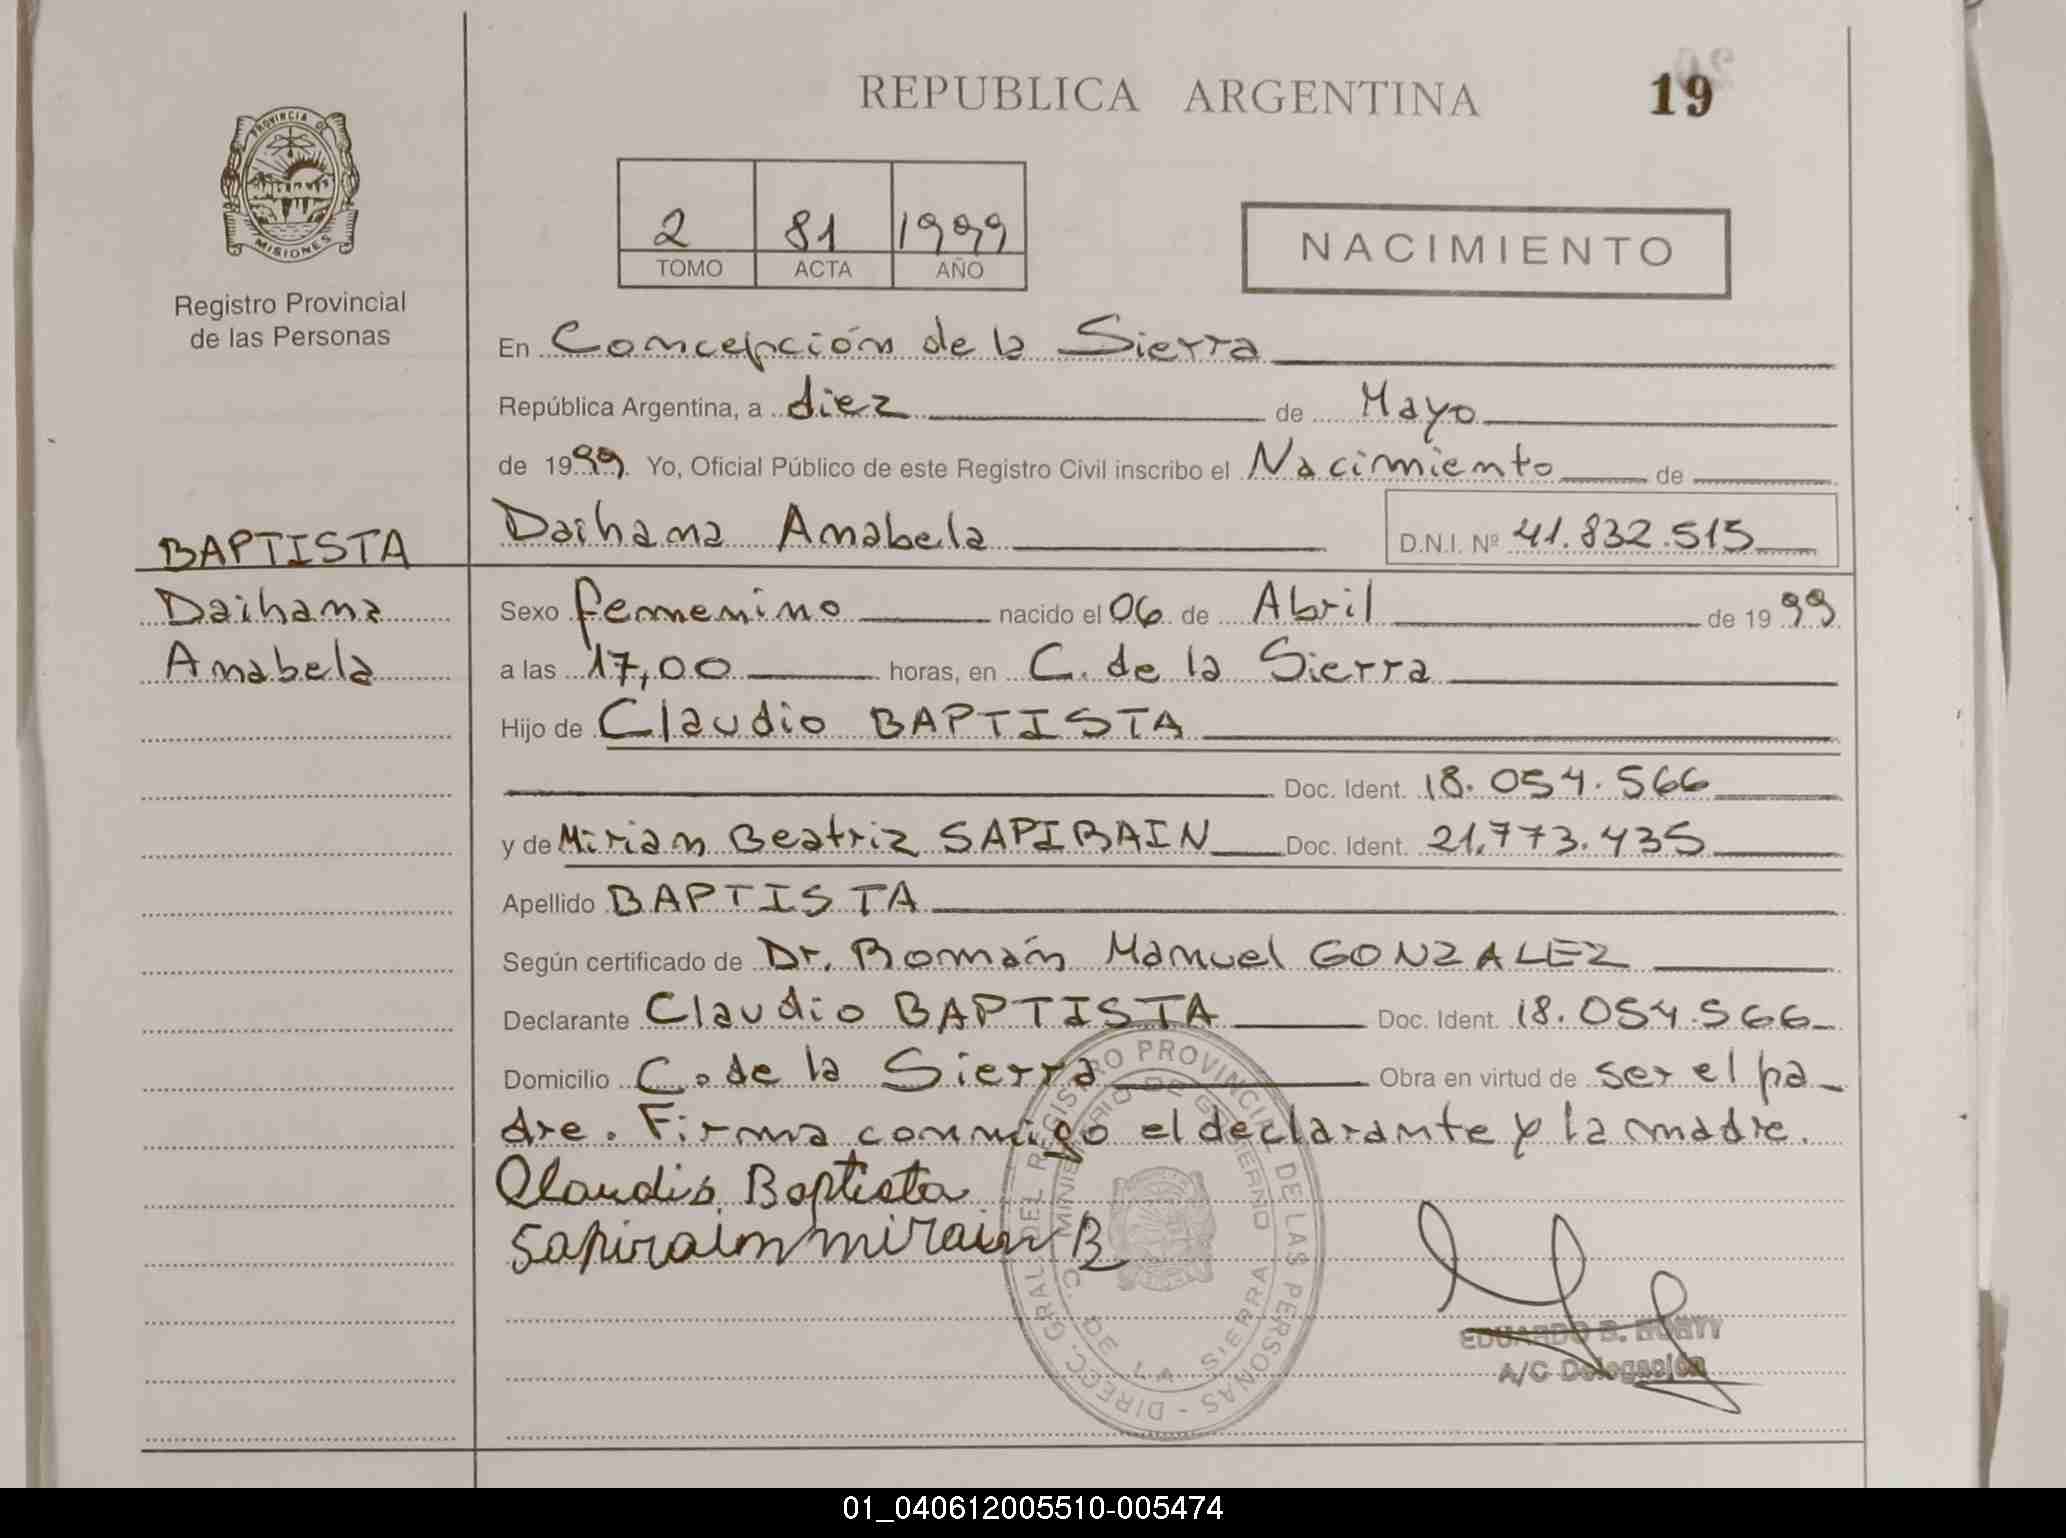 REPUBLICA ARGENTINA
19
PROVINCIA DE
MISIONES
Registro Provincial
de las Personas
2 81 1999
TOMO ACTA AÑO
NACIMIENTO
En Concepción de la Sierra
República Argentina, a diez de Mayo
de 1999. Yo, Oficial Público de este Registro Civil inscribo el Nacimiento de
Daihana Anabela D.N.I. Nº 41.832.515
BAPTISTA
Daihana
Anabela
Sexo femenino nacido el 06 de Abril de 1999
a las 17,00 horas, en C. de la Sierra
Hijo de Claudio BAPTISTA
Doc. Ident. 18.054.566
y de Mirian Beatriz SAPIRAIN Doc. Ident. 21.773.435
Apellido BAPTISTA
Según certificado de Dr. Román Manuel GONZALEZ
Declarante Claudio BAPTISTA Doc. Ident. 18.054.566
Domicilio C. de la Sierra Obra en virtud de ser el pa-
dre. Firma conmigo el declarante y la madre.
Claudio Baptista
Sapirain mirain B
DIRECC. GRAL. DEL REGISTRO PROVINCIAL DE LAS PERSONAS -
MINISTERIO DE GOBIERNO
C. DE LA SIERRA
EDUARDO B.
A/C Delegación
01_040612005510-005474